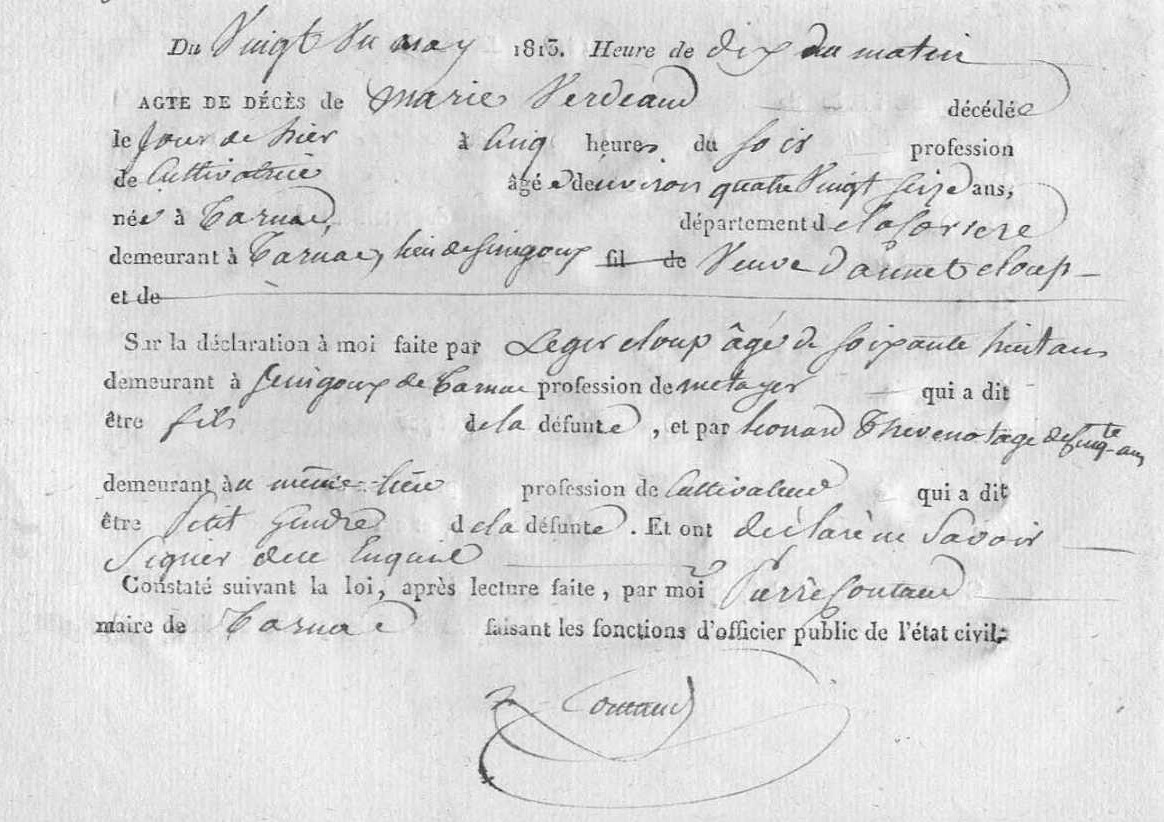 Du Vingt un may 1813. Heure de dix du matin
ACTE DE DÉCÈS de Marie Verdeaud décédée
le jour de hier à Cinq heures du soir profession
de Cultivatrice âgée denviron quatre Vingt seize ans,
née à Tarnac, département de la Correre
demeurant à Tarnac, lieu de Senigoux fil de Veuve Dannet eloup
et de
Sur la déclaration à moi faite par Leger eloup âgé de soixante huit ans
demeurant à Senigoux de Tarnac profession de metayer qui a dit
être fils de la défunte, et par leonard Thevenot age de Cinqte ans
demeurant au même lieu profession de Cultivateur qui a dit
être Petit Gendre de la défunte. Et ont declaré ne Savoir
Signer de ce Enquis
Constaté suivant la loi, après lecture faite, par moi Pierre Coutaud
maire de Tarnac faisant les fonctions d'officier public de l'état civil.
Coutaud